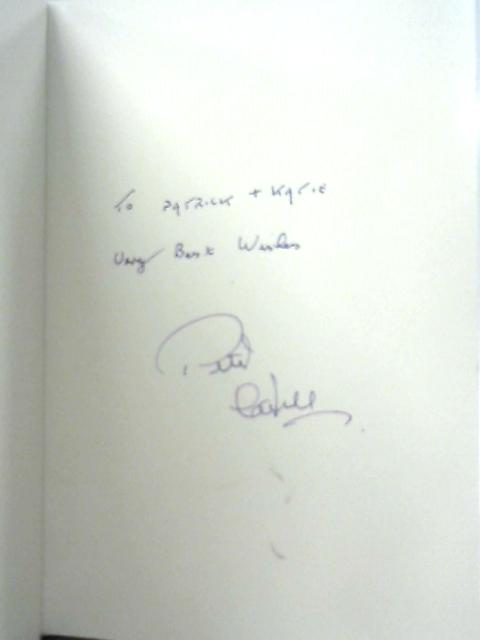 To PATRICK + KATIE
Very Best Wishes
Peter